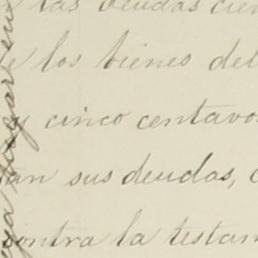 las deudas cien
los bienes del
y cinco centavos
an sus deudas, c
contra la testam